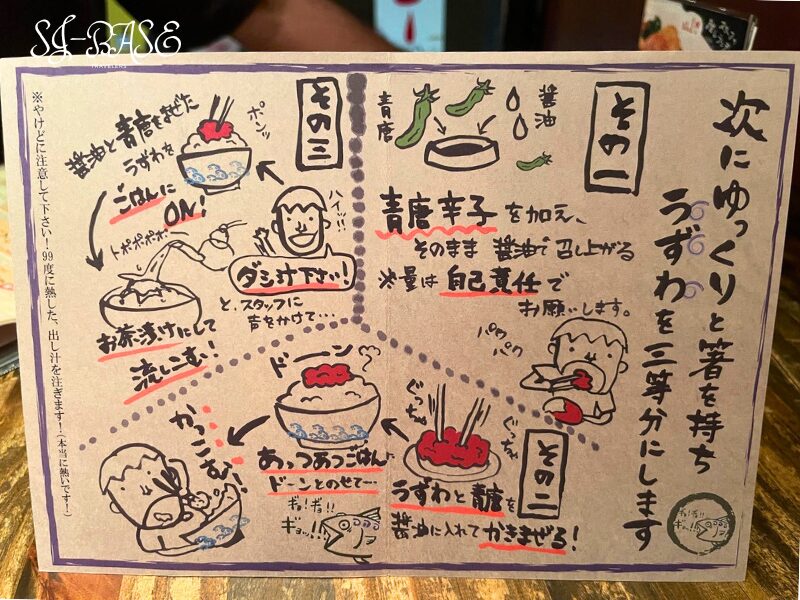 SJ-BASE
TRAVELERS
次にゆっくりと箸を持ち
うずわを三等分にします
その一
青唐
醤油
青唐辛子を加え、
そのまま醤油で召し上がる
※量は自己責任で
お願いします。
パク
パク
その二
ぐっちゃ
ぐっちゃ
うずわと青唐を
醤油に入れてかきまぜる!
ドーン
あっつあつごはん
ドーンとのせて…
かっこむ!
ギョ!ギョ!!
ギョッ!!
その三
醤油と青唐をまぜた
うずわを
ポンッ
ごはんに
ON!
ハイッ!!
ダシ汁下さい!
と、スタッフに
声をかけて…
トポポポポ…
お茶漬けにして
流しこむ!
※やけどに注意して下さい!99度に熱した、出し汁を注ぎます!(本当に熱いです!)
ギョ!ギョ!!
ギョ!!